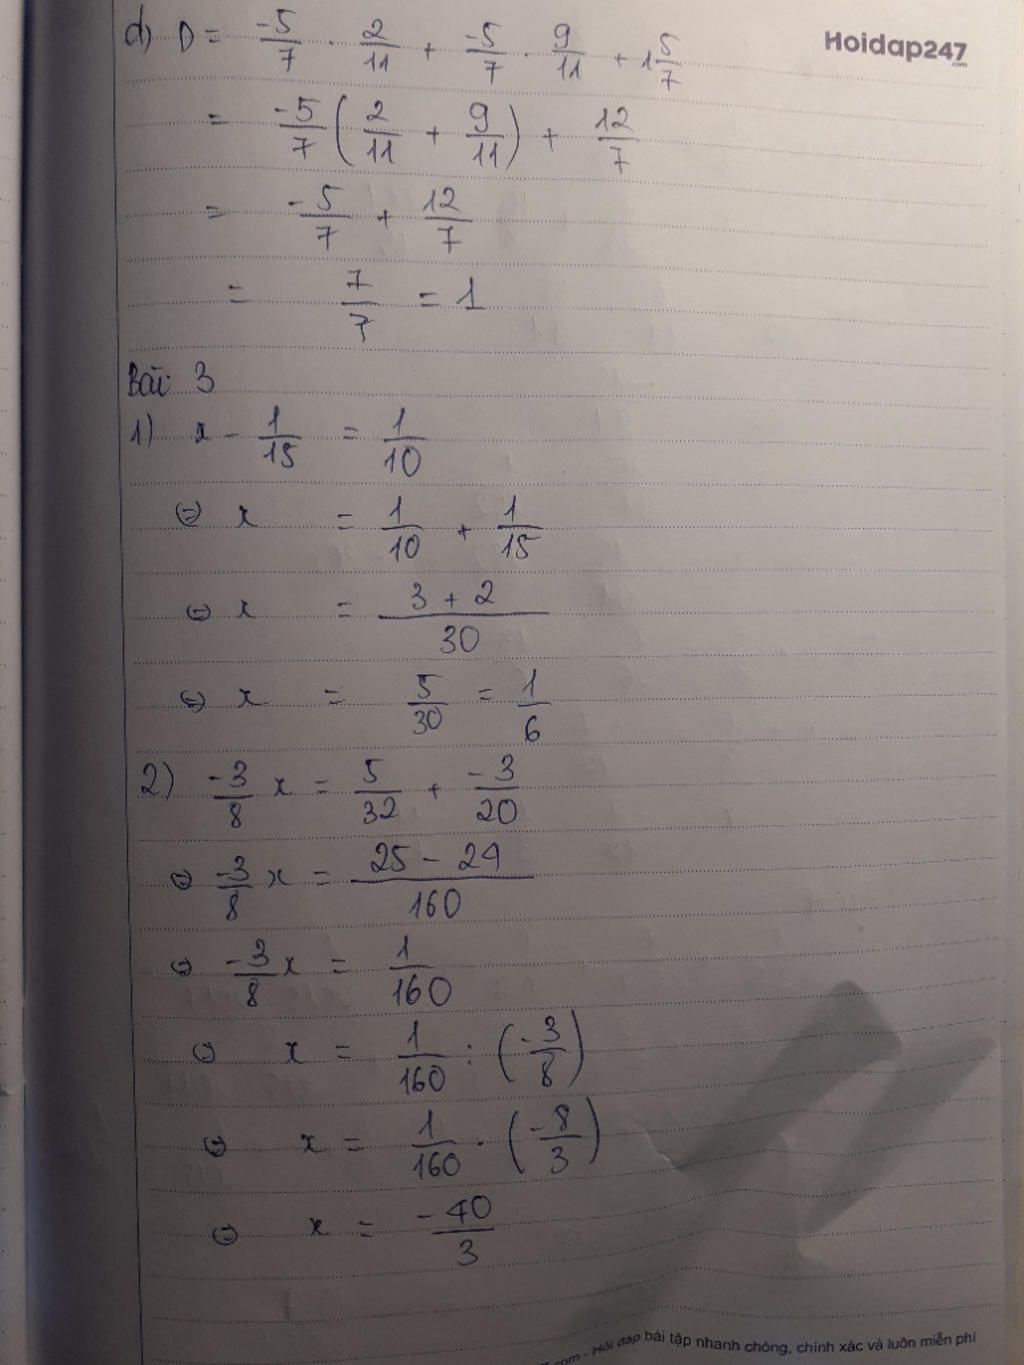 d) D = -5/7 . 2/11 + -5/7 . 9/11 + 1 5/7
Hoidap247
.com
= -5/7 (2/11 + 9/11) + 12/7
= -5/7 + 12/7
= 7/7 = 1
Bài 3
1) x - 1/15 = 1/10
⇔ x = 1/10 + 1/15
⇔ x = (3 + 2)/30
⇔ x = 5/30 = 1/6
2) -3/8 x = 5/32 + -3/20
⇔ -3/8 x = (25 - 24)/160
⇔ -3/8 x = 1/160
⇔ x = 1/160 : (-3/8)
⇔ x = 1/160 . (-8/3)
⇔ x = -40/3
.com - Hỏi đáp bài tập nhanh chóng, chính xác và luôn miễn phí